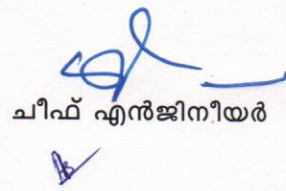 ചീഫ് എൻജിനീയർ